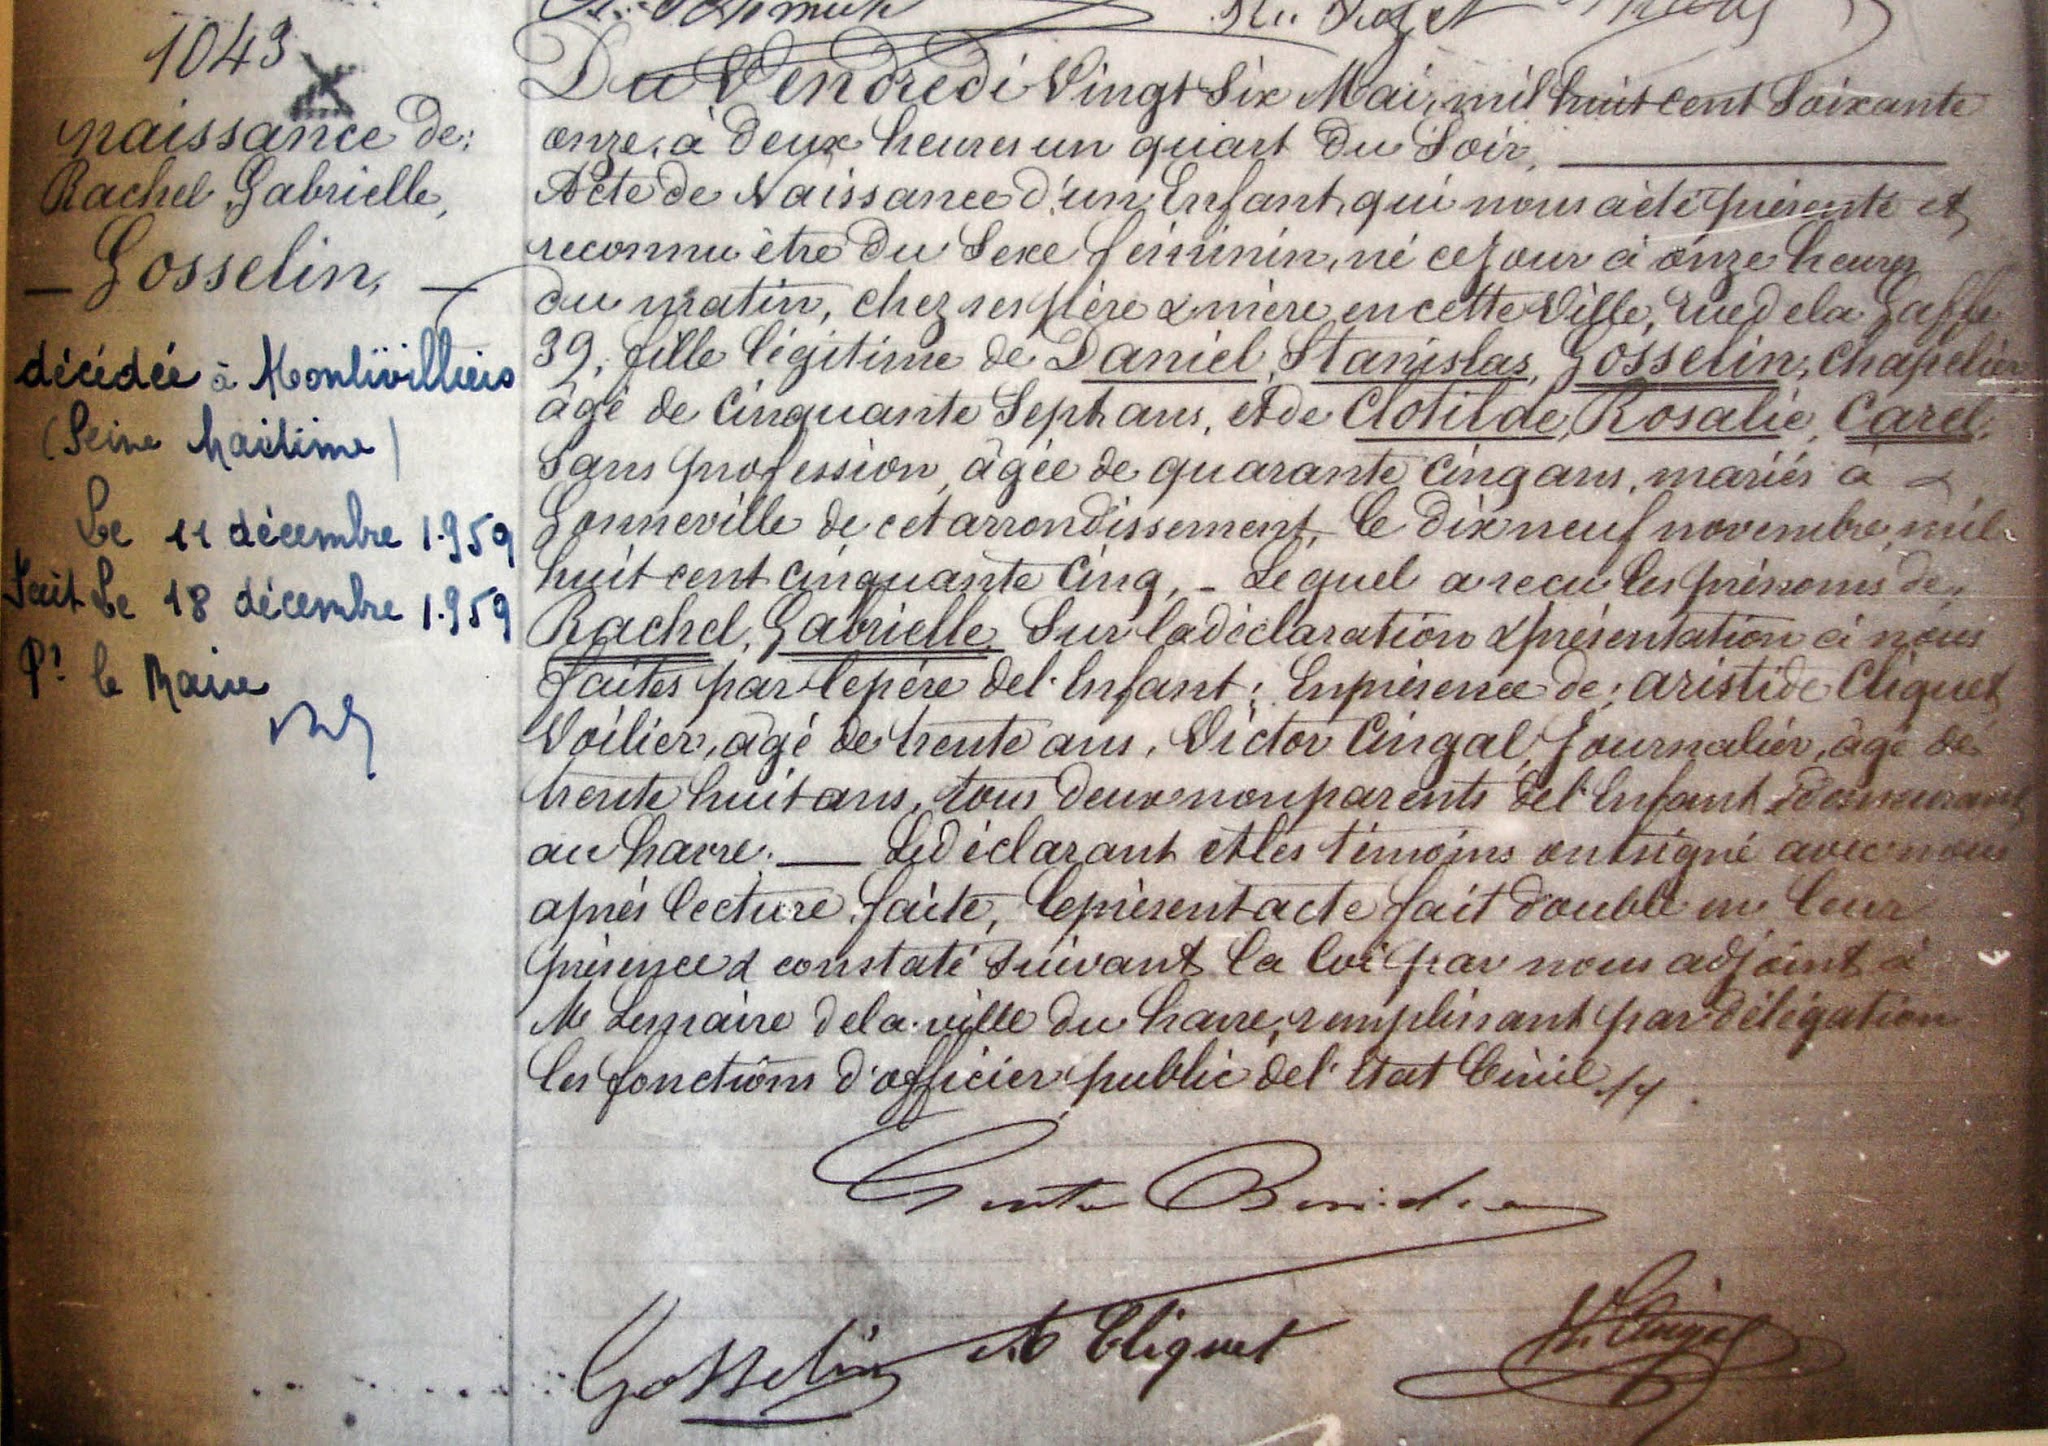 1043
naissance de:
Rachel Gabrielle,
Gosselin,
décédée à Montivilliers
(Seine Maritime)
Le 11 décembre 1959
Fait Le 18 décembre 1959
Pr le Maire
Du Vendredi Vingt Six Mai, mil huit cent Soixante
onze, à deux heures un quart du Soir,
Acte de Naissance d'un Enfant, qui nous a été présenté et
reconnu être du Sexe féminin, né ce jour à onze heures
du matin, chez ses père & mère en cette Ville, rue de la Gaffe
39, fille légitime de Daniel, Stanislas, Gosselin, Chapelier,
âgé de Cinquante Sept ans, et de Clotilde, Rosalie, Carel,
Sans profession, âgée de quarante Cinq ans, mariés à
Gonneville de cet arrondissement, le dix neuf novembre, mil
huit cent cinquante Cinq, _ Lequel a reçu les prénoms de,
Rachel, Gabrielle, Sur la déclaration & présentation à nous
faites par le père de l'Enfant; En présence de; aristide Cliquet,
Voilier, âgé de trente ans, Victor Cingal, Journalier, âgé de
trente huit ans, tous deux non parents de l'Enfant & demeurant
au havre. — Le déclarant et les témoins ont signé avec nous
après lecture faite, le présent acte fait double en leur
présence & constaté suivant la loi par nous adjoint à
Mr Lemaire de la ville du havre, remplissant par délégation
les fonctions d'officier public de l'Etat Civil
Gosselin A Cliquet
V. Cingal